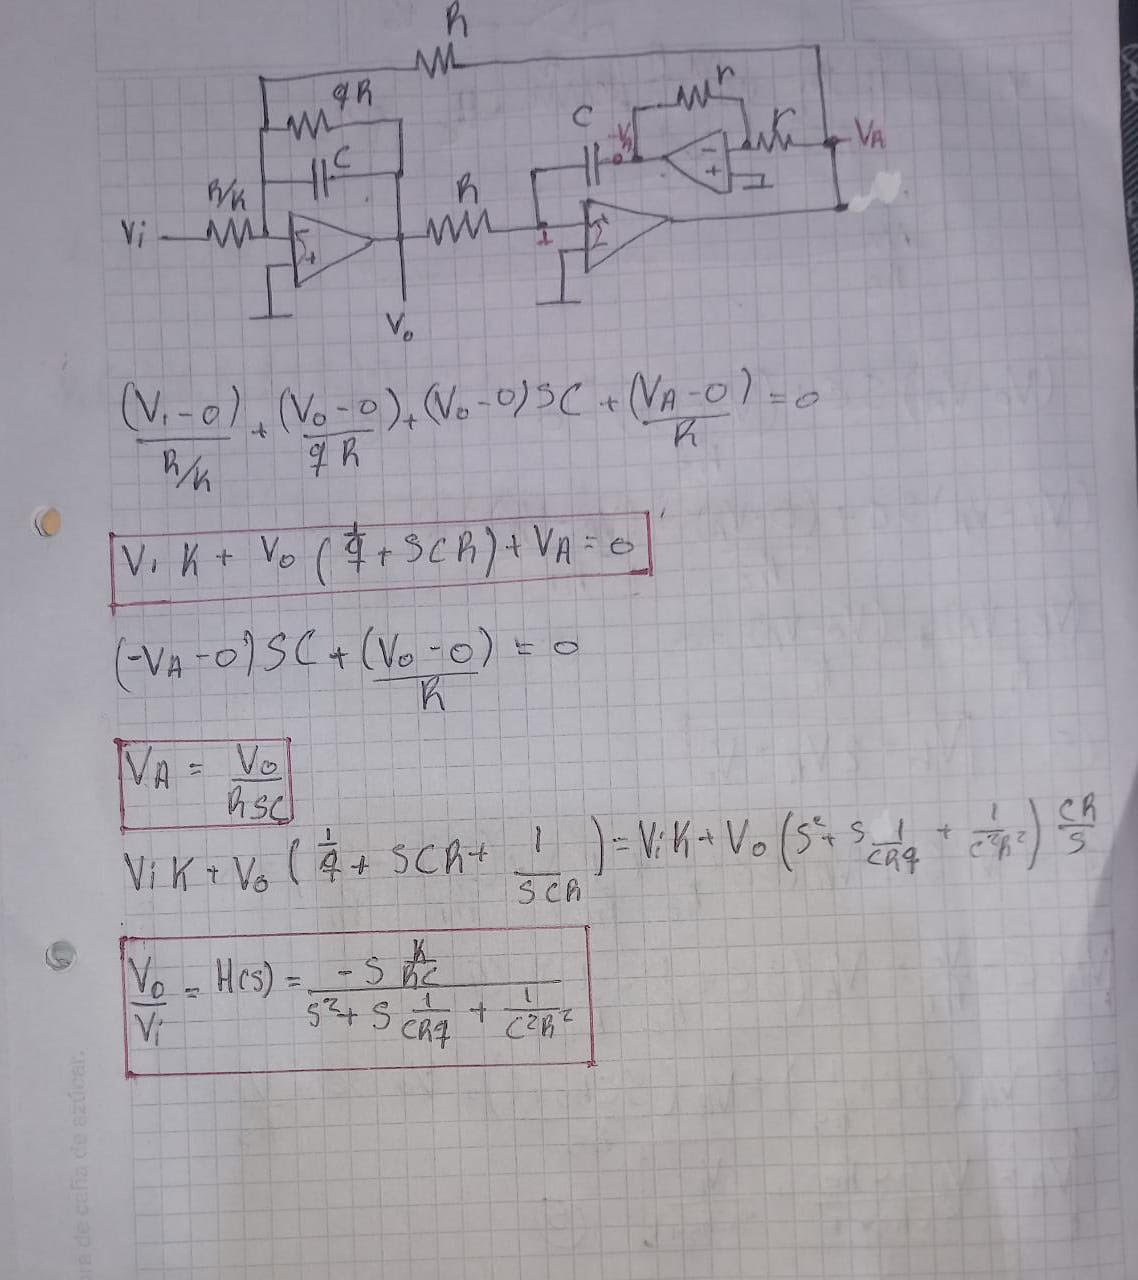 R
qR
r
C
-VA
r
VA
C
R/K
R
Vi
-
+
-
+
1
+
-
Vo
(Vi-0)/(R/K) + (Vo-0)/(qR) + (Vo-0)SC + (VA-0)/R = 0
Vi K + Vo (1/q + SCR) + VA = 0
(-VA-0)SC + (Vo-0)/R = 0
VA = Vo/(RSC)
Vi K + Vo (1/q + SCR + 1/(SCR)) = Vi K + Vo (S² + S 1/(CRq) + 1/(C²R²)) CR/S
Vo/Vi = H(s) = (-S K/(RC))/(S² + S 1/(CRq) + 1/(C²R²))
a de caña de azúcar.